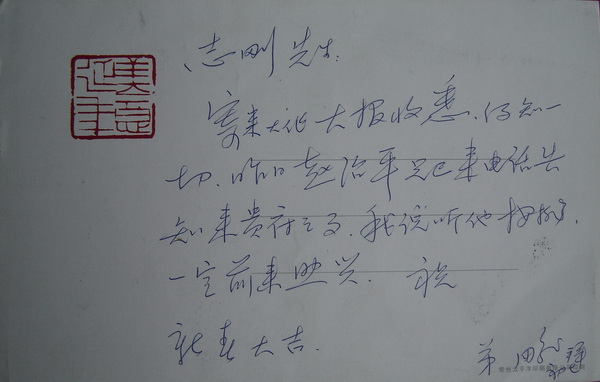 志刚先生:
寄来大作大报收悉.得知一
切.昨日赵治平兄已来电话告
知来贵府之事.我说听他安排,
一定前来助兴. 祝
新春大吉.
弟
美意
延年